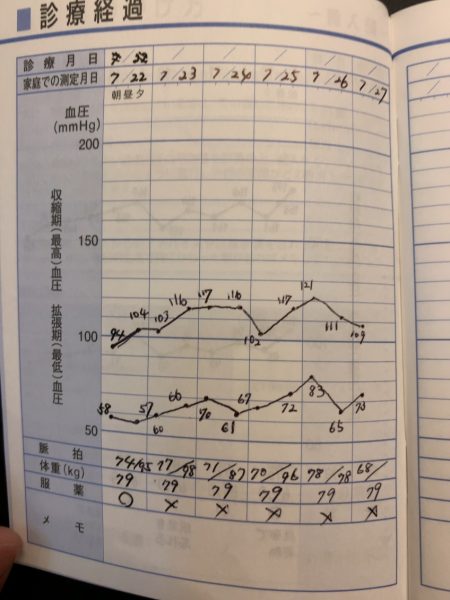 診療経過
診療月日 / / / / / /
家庭での測定月日 7/22 7/23 7/24 7/25 7/26 7/27
血圧 朝昼夕
(mmHg)
200
収縮期(最高)血圧
150
121
116 117 116 117
94 104 103 102 111 109
100
拡張期(最低)血圧
83
66 67 72 73
58 57 60 70 61 65
50
脈拍 74/95 77/98 71/87 70/96 78/98 68/
体重(kg) 79 79 79 79 79 79
服薬 ○ × × × × ×
メモ